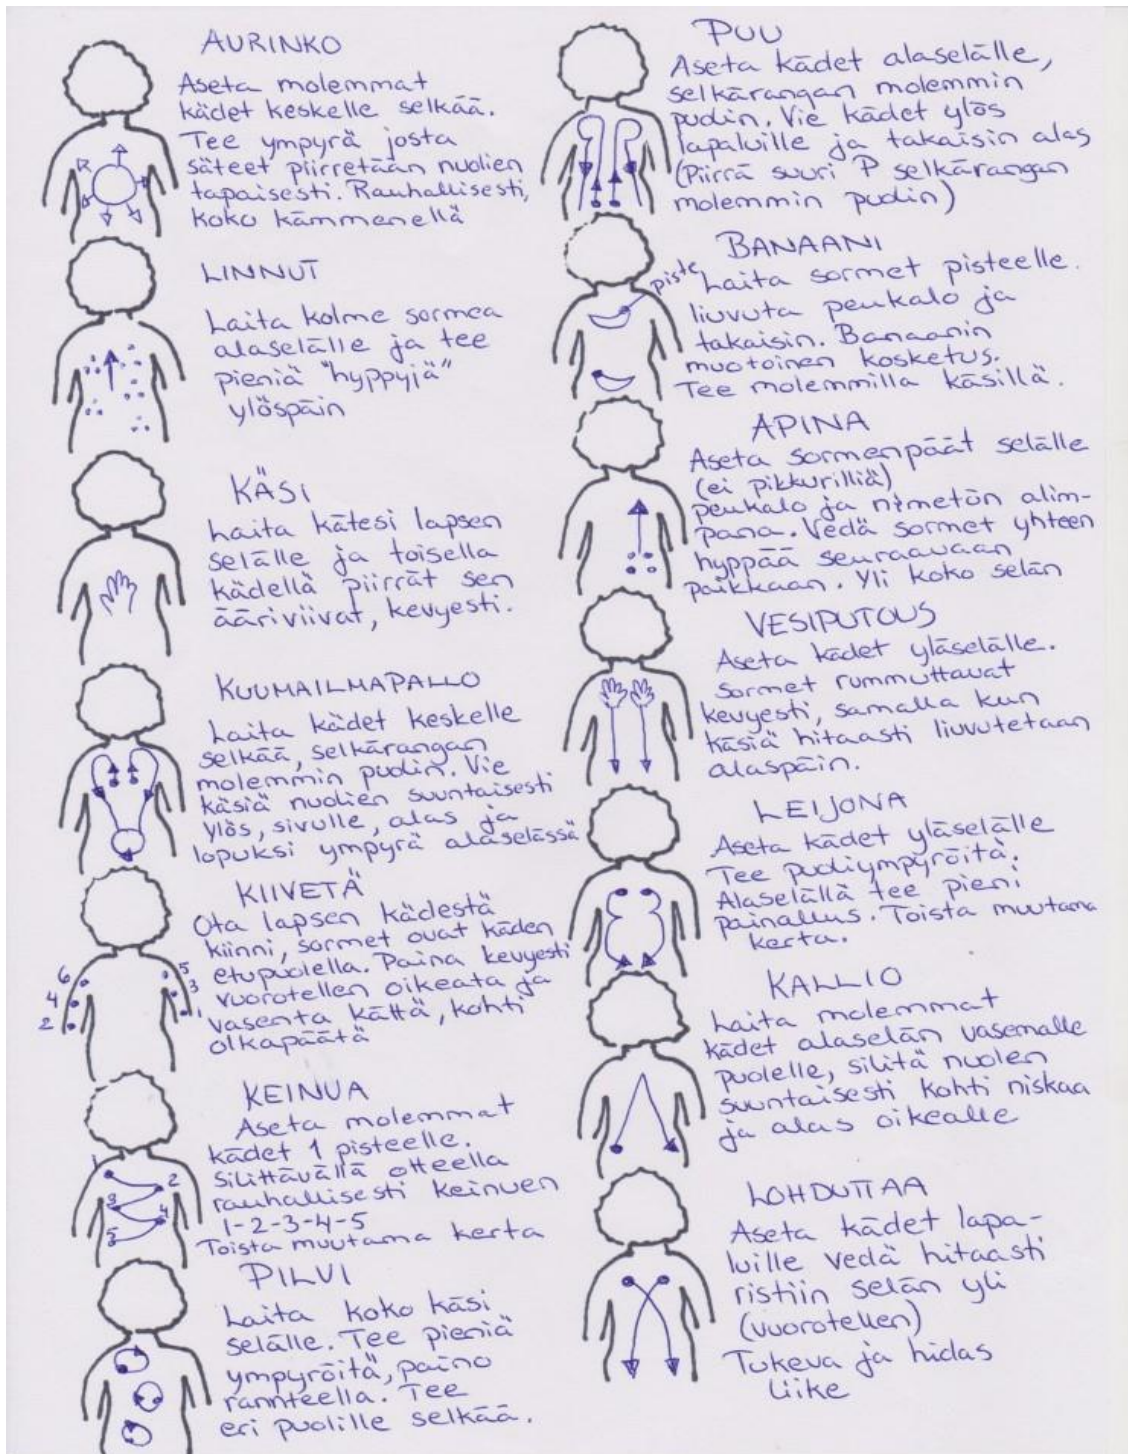 AURINKO
Aseta molemmat
kädet keskelle selkää.
Tee ympyrä josta
säteet piirretään nuolien
tapaisesti. Rauhallisesti,
koko kämmenellä
LINNUT
Laita kolme sormea
alaselälle ja tee
pieniä "hyppyjä"
ylöspäin
KÄSI
Laita kätesi lapsen
selälle ja toisella
kädellä piirrät sen
ääriviivat, kevyesti.
KUUMAILMAPALLO
Laita kädet keskelle
selkää, selkärangan
molemmin puolin. Vie
käsiä nuolien suuntaisesti
ylös, sivulle, alas ja
lopuksi ympyrä alaselässä
KIIVETÄ
Ota lapsen kädestä
kiinni, sormet ovat käden
etupuolella. Paina kevyesti
vuorotellen oikeata ja
vasenta kättä, kohti
olkapäätä
6
4
2
5
3
1
KEINUA
Aseta molemmat
kädet 1 pisteelle.
Silittävällä otteella
rauhallisesti keinuen
1-2-3-4-5
Toista muutama kerta
1
2
3
4
5
PILVI
Laita koko käsi
selälle. Tee pieniä
ympyröitä, paino
rannteella. Tee
eri puolille selkää.
PUU
Aseta kädet alaselälle,
selkärangan molemmin
puolin. Vie kädet ylös
lapaluille ja takaisin alas
(Piirrä suuri P selkärangan
molemmin puolin)
BANAANI
piste
Laita sormet pisteelle.
liuvuta peukalo ja
takaisin. Banaanin
muotoinen kosketus.
Tee molemmilla käsillä.
APINA
Aseta sormenpäät selälle
(ei pikkurilliä)
peukalo ja nimetön alim-
pana. Vedä sormet yhteen
hyppää seuraavaan
paikkaan. Yli koko selän
VESIPUTOUS
Aseta kädet yläselälle.
Sormet rummuttavat
kevyesti, samalla kun
käsiä hitaasti liuvutetaan
alaspäin.
LEIJONA
Aseta kädet yläselälle
Tee puoliympyröitä.
Alaselällä tee pieni
painallus. Toista muutama
kerta.
KALLIO
Laita molemmat
kädet alaselän vasemalle
puolelle, silitä nuolen
suuntaisesti kohti niskaa
ja alas oikealle
LOHDUTTAA
Aseta kädet lapa-
luille vedä hitaasti
ristiin selän yli
(vuorotellen)
Tukeva ja hidas
liike